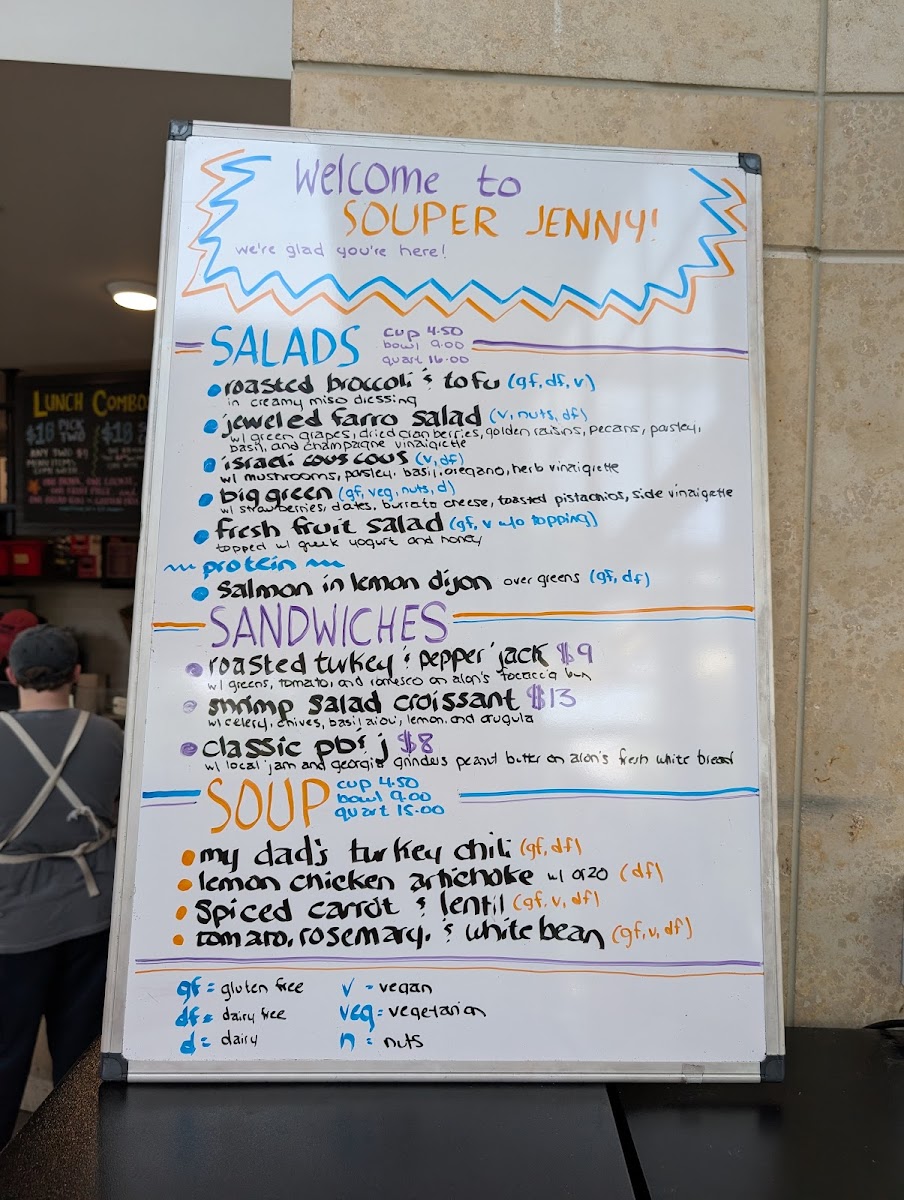 Welcome to
SOUPER JENNY!
we're glad you're here!
SALADS
cup 4.50
bowl 9.00
quart 16.00
roasted broccoli & tofu (gf, df, v)
in creamy miso dressing
jeweled farro salad (v, nuts, df)
w/ green grapes, dried cranberries, golden raisins, pecans, parsley,
basil, and champagne vinaigrette
israeli cous cous (v, df)
w/ mushrooms, parsley, basil, oregano, herb vinaigrette
big green (gf, veg, nuts, d)
w/ strawberries, dates, burrata cheese, toasted pistachios, side vinaigrette
fresh fruit salad (gf, v w/o topping)
topped w/ greek yogurt and honey
protein
salmon in lemon dijon over greens (gf, df)
SANDWICHES
roasted turkey & pepper jack $9
w/ greens, tomato, and romesco on alon's focaccia bun
shrimp salad croissant $13
w/ celery, chives, basil aioli, lemon, and arugula
classic pb & j $8
w/ local jam and georgia grinders peanut butter on alon's fresh white bread
SOUP
cup 4.50
bowl 9.00
quart 15.00
my dad's turkey chili (gf, df)
lemon chicken artichoke w/ orzo (df)
spiced carrot & lentil (gf, v, df)
tomato, rosemary, & white bean (gf, v, df)
gf = gluten free
df = dairy free
d = dairy
v = vegan
veg = vegetarian
n = nuts
LUNCH COMBO
$16 PICK TWO
ANY TWO $9
MENU ITEMS